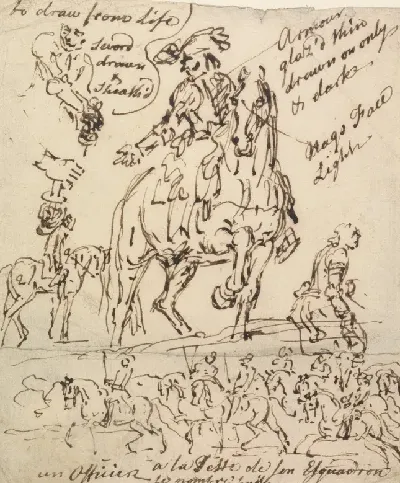 to draw from Life
Sword
drawn
&
Sheath'd
Armour
glaz'd thin
drawn on only
& dark
Nags Face
Light
un Officier a la Teste de son Esquadron